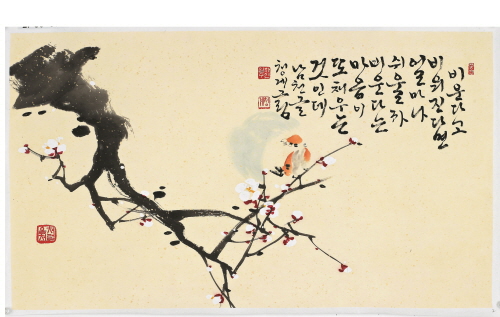 비운다고
비워진다면
얼마나
쉬울까
비운다는
마음이
또 채우는
것인데
남천 글
청계 그림